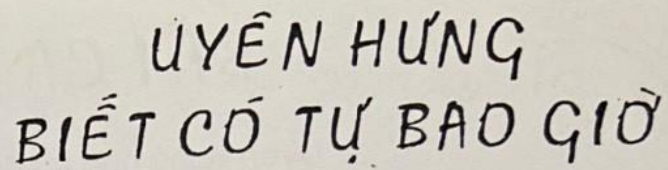 UYÊN HƯNG
BIẾT CÓ TỰ BAO GIỜ